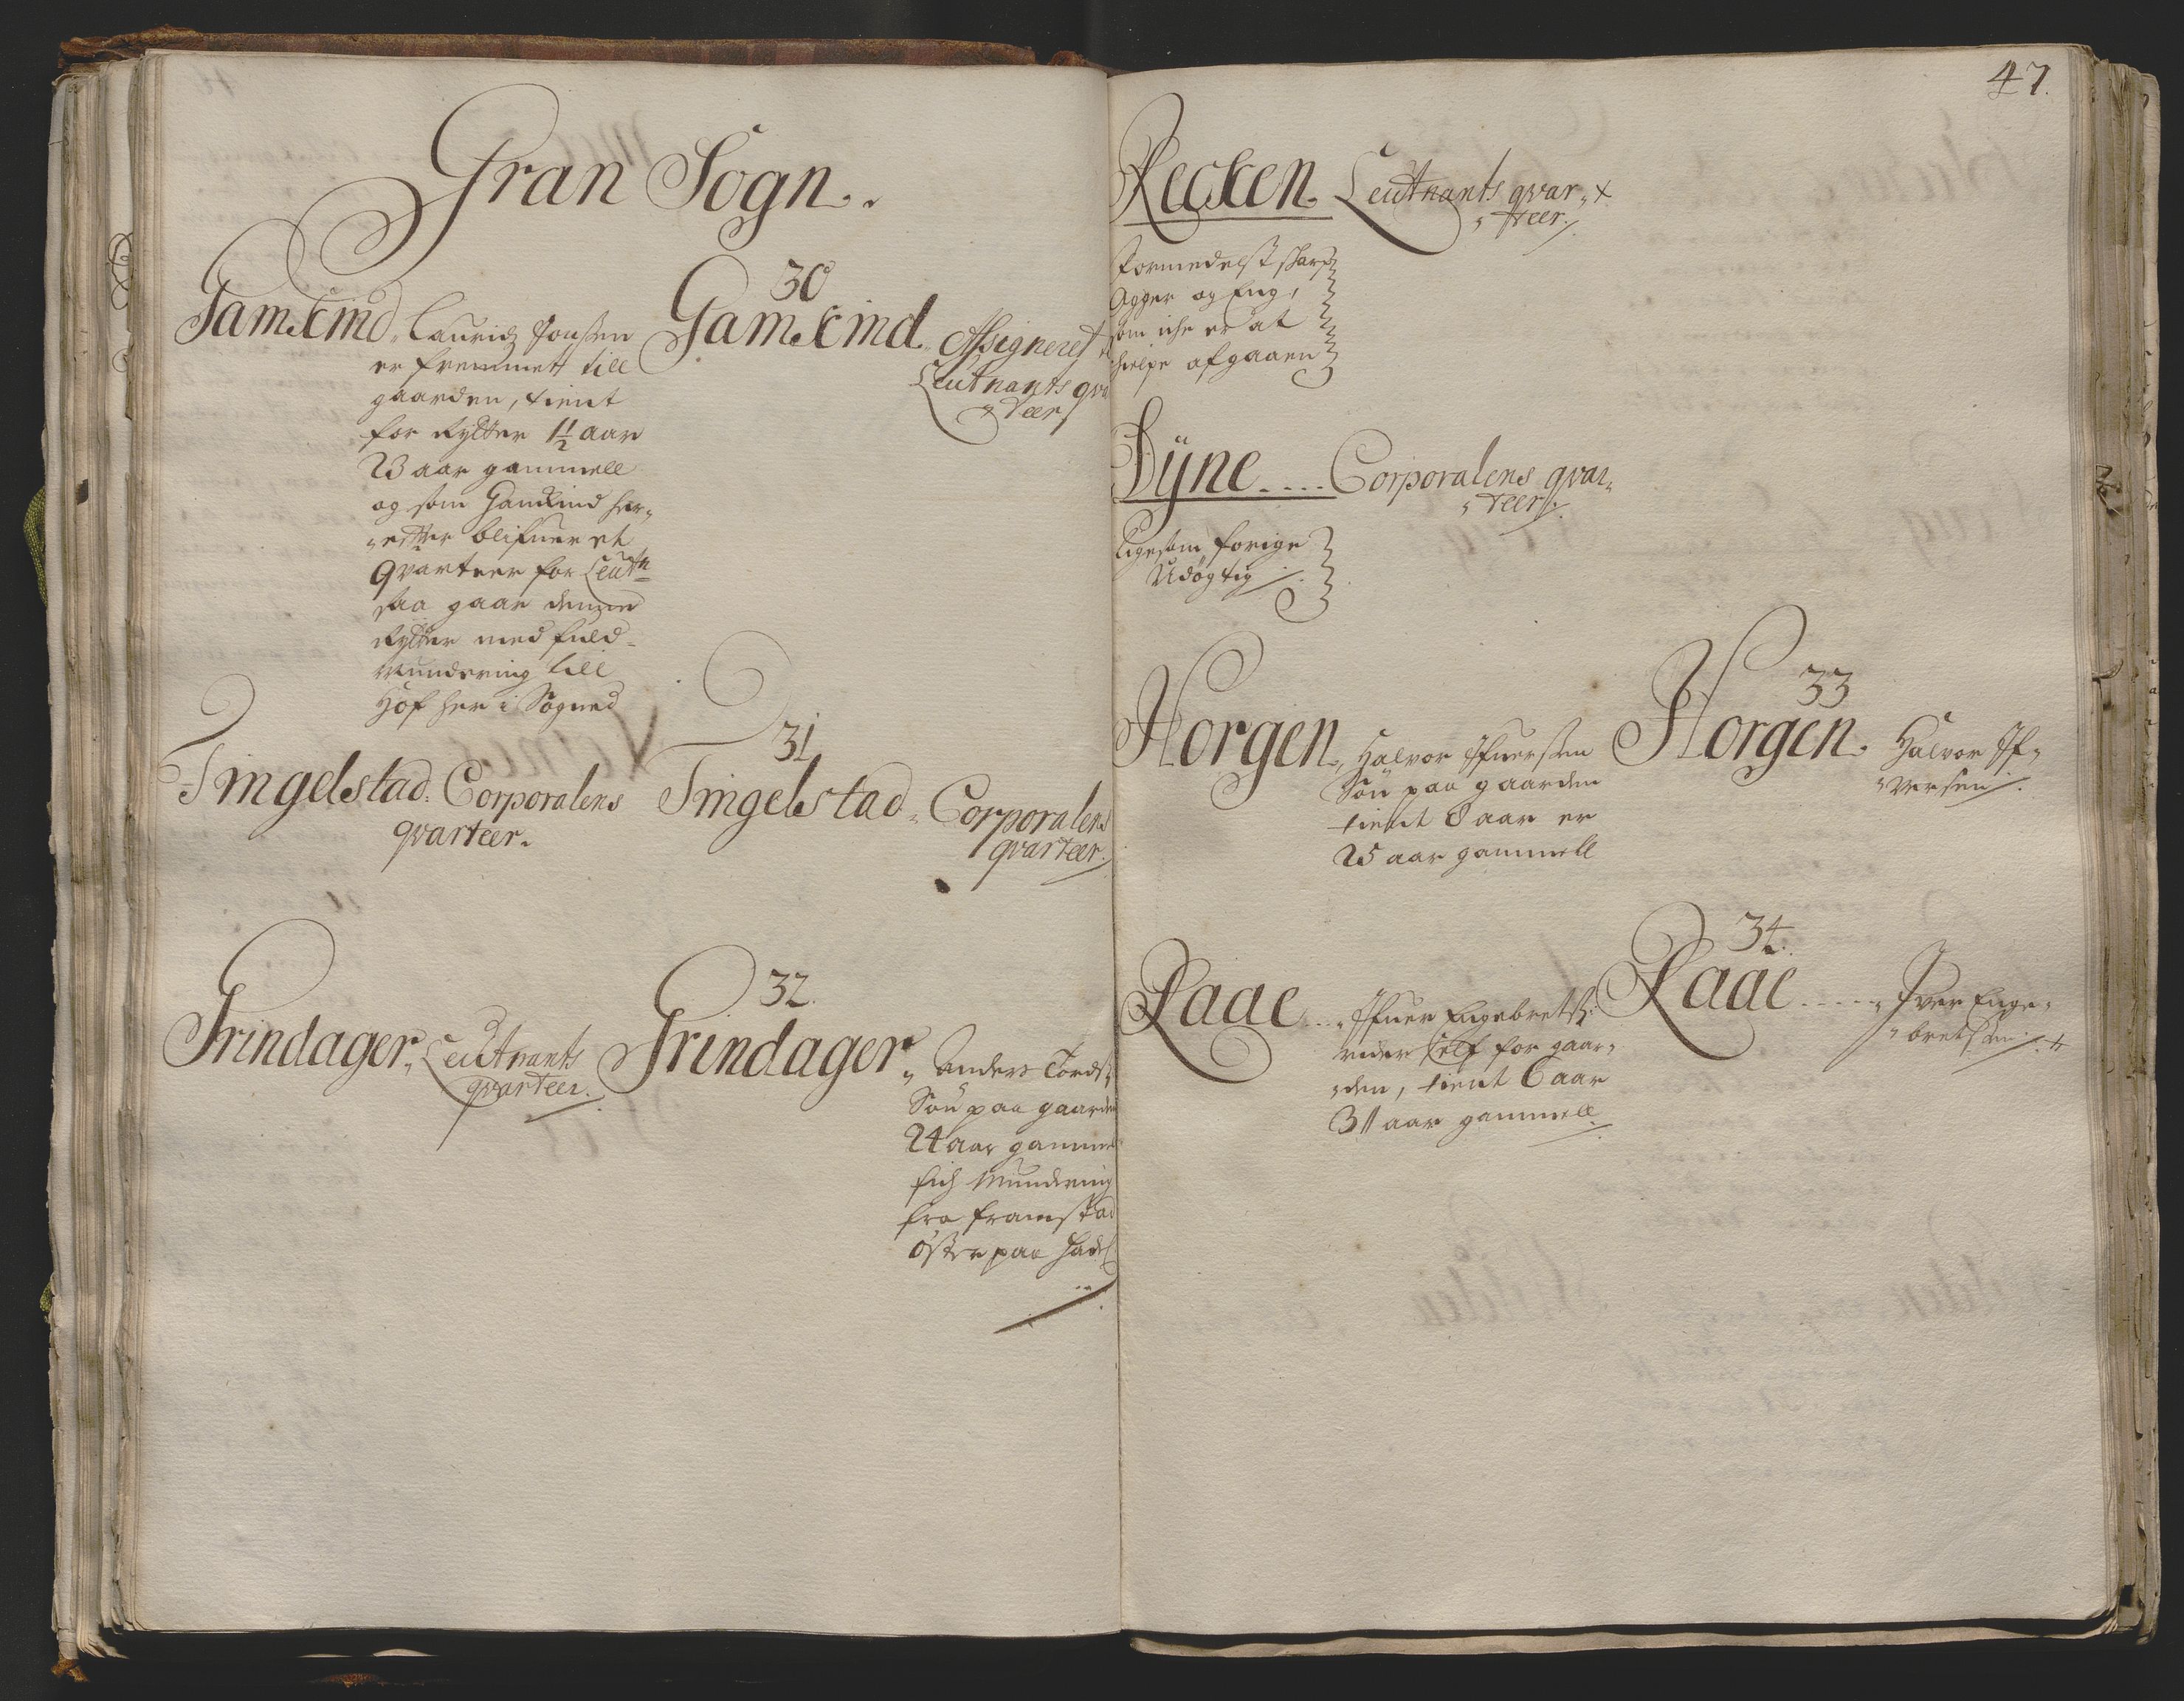 Gran Sogn.
Gamkind, Lauridz Joensen
er fremmett till
gaarden, tient
for Rytter 1½ aar
23 aar gammell
og som Gamkind her,
etter blifuer et
Qvarteer for Leutn
saa gaar denne
Rytter med fuld
Mundering till
Hof her i Sogned
30
Gamkind. Assigneret
Leutnants qva
teer
Tingelstad. Corporalens
qvarteer.
31
Tingelstad. Corporalens
qvarteer.
Trindager, Leutnants
qvarteer.
32.
Trindager, Anders Tords:
Søn paa gaarden
24 aar gammel
fich Mundering
fra Framstad
Øster paa Hadel
47.
Recken. Leutnants qvar,
teer.
Formedelst skarp
Agger og Eng,
som iche er at
hielpe afgaaen
Dÿne .... Corporalens qvar,
teer.
Ligesom forige
Udøgtig
Horgen, Halvor Ifuersen
Søn paa gaarden
tient 8 aar er
25 aar gammell
33
Horgen. Halvor If,
versen
Raae ... Ifuer Engebrets:
rider self for gaar,
den, tient 6 aar
31 aar gammell.
34.
Raae ..... Iver Enge,
bretsen